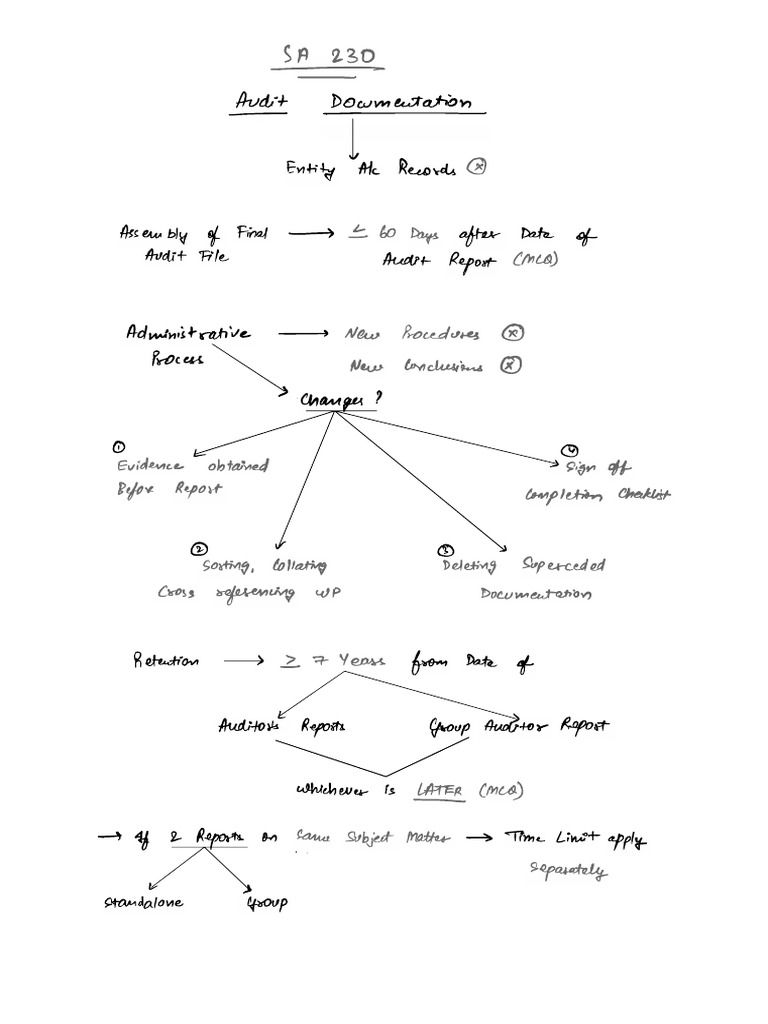 SA 230
Audit Documentation
Entity A/c Records ⓧ
Assembly of Final → ≤ 60 Days after Date of
Audit File Audit Report (MCQ)
Administrative → New Procedures ⓧ
Process New Conclusions ⓧ
Changes ?
① ④
Evidence obtained Sign off
Before Report Completion Checklist
② ③
Sorting, Collating Deleting Superceded
Cross referencing WP Documentation
Retention → ≥ 7 Years from Date of
Auditor's Reports Group Auditor Report
whichever is LATER (MCQ)
→ If 2 Reports on Same Subject Matter → Time Limit apply
Separately
Standalone Group